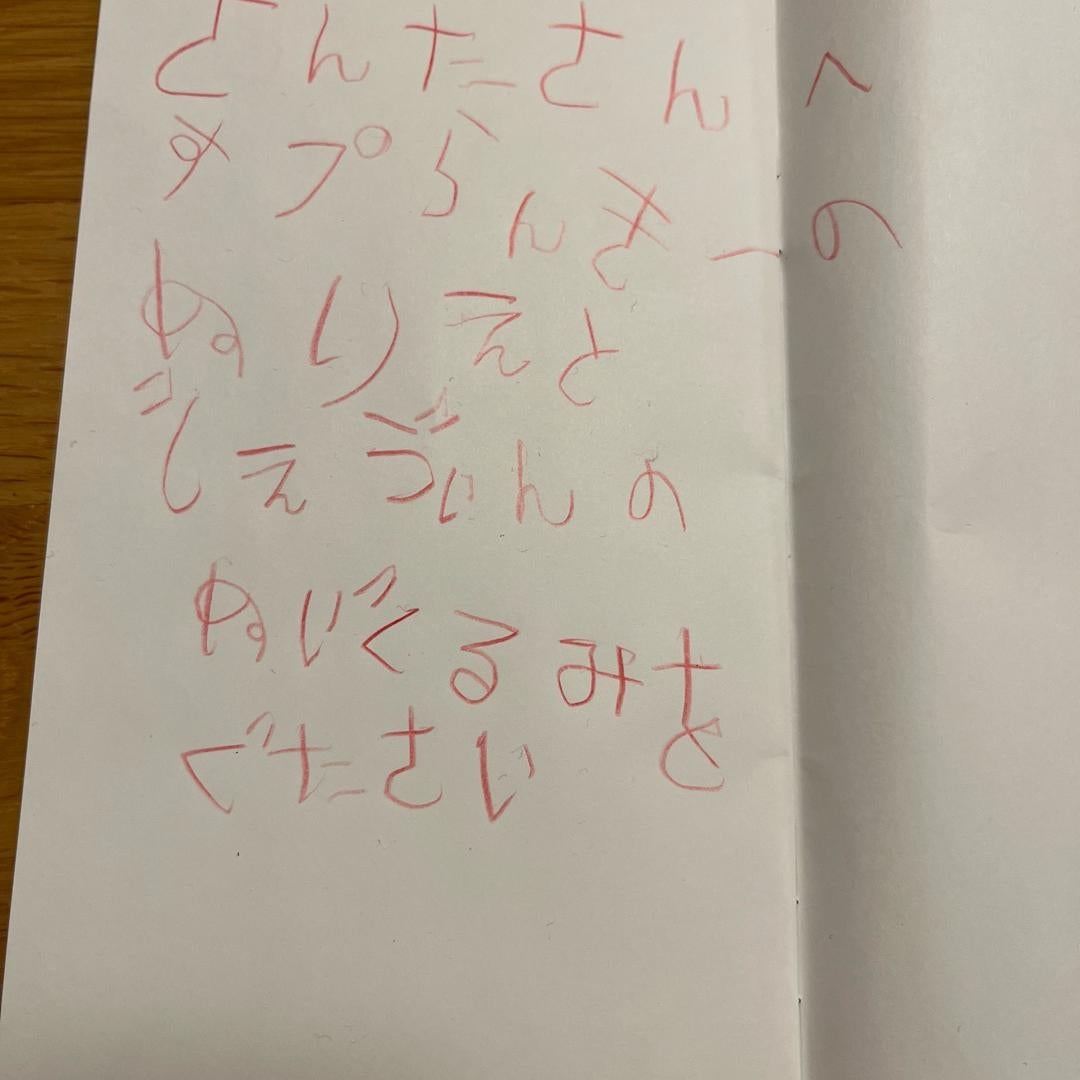 さんたさんへ
すプらんきーの
ぬりえと
じえゔぃんの
ぬいぐるみを
ぐたさい